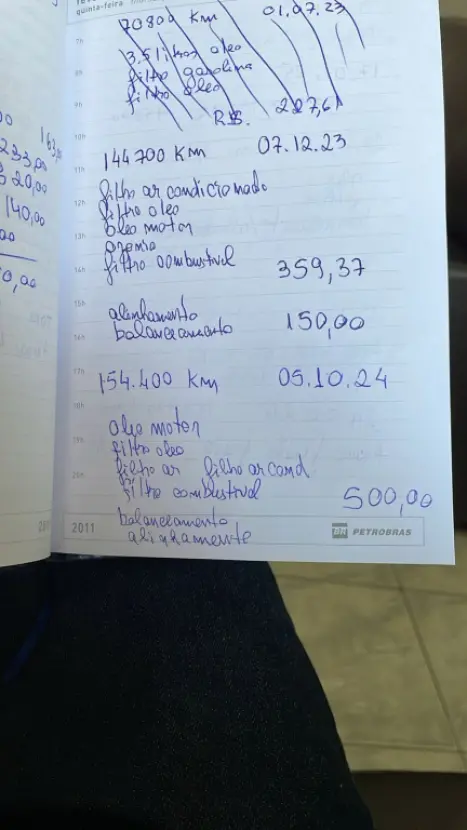 quinta-feira
70800 Km 01.07.23
7h
3,5 litros oleo
8h
filtro gasolina
filtro oleo
9h
R$. 227,61
10h
144700 Km 07.12.23
11h
filtro ar condicionado
12h
filtro oleo
oleo motor
13h
filtro combustivel 359,37
14h
15h
alinhamento
balanceamento 150,00
16h
17h
154.400 Km 05.10.24
18h
oleo motor
19h
filtro oleo
filtro ar filtro ar cond
20h
filtro combustivel
500,00
balanceamento
2011 BR PETROBRAS
alinhamente
163,00
233,00
320,00
140,00